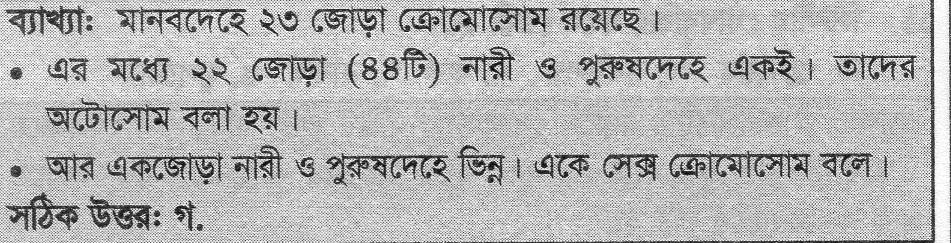 ব্যাখ্যা: মানবদেহে ২৩ জোড়া ক্রোমোসোম রয়েছে।
• এর মধ্যে ২২ জোড়া (৪৪টি) নারী ও পুরুষদেহে একই। তাদের
অটোসোম বলা হয়।
• আর একজোড়া নারী ও পুরুষদেহে ভিন্ন। একে সেক্স ক্রোমোসোম বলে।
সঠিক উত্তর: গ.